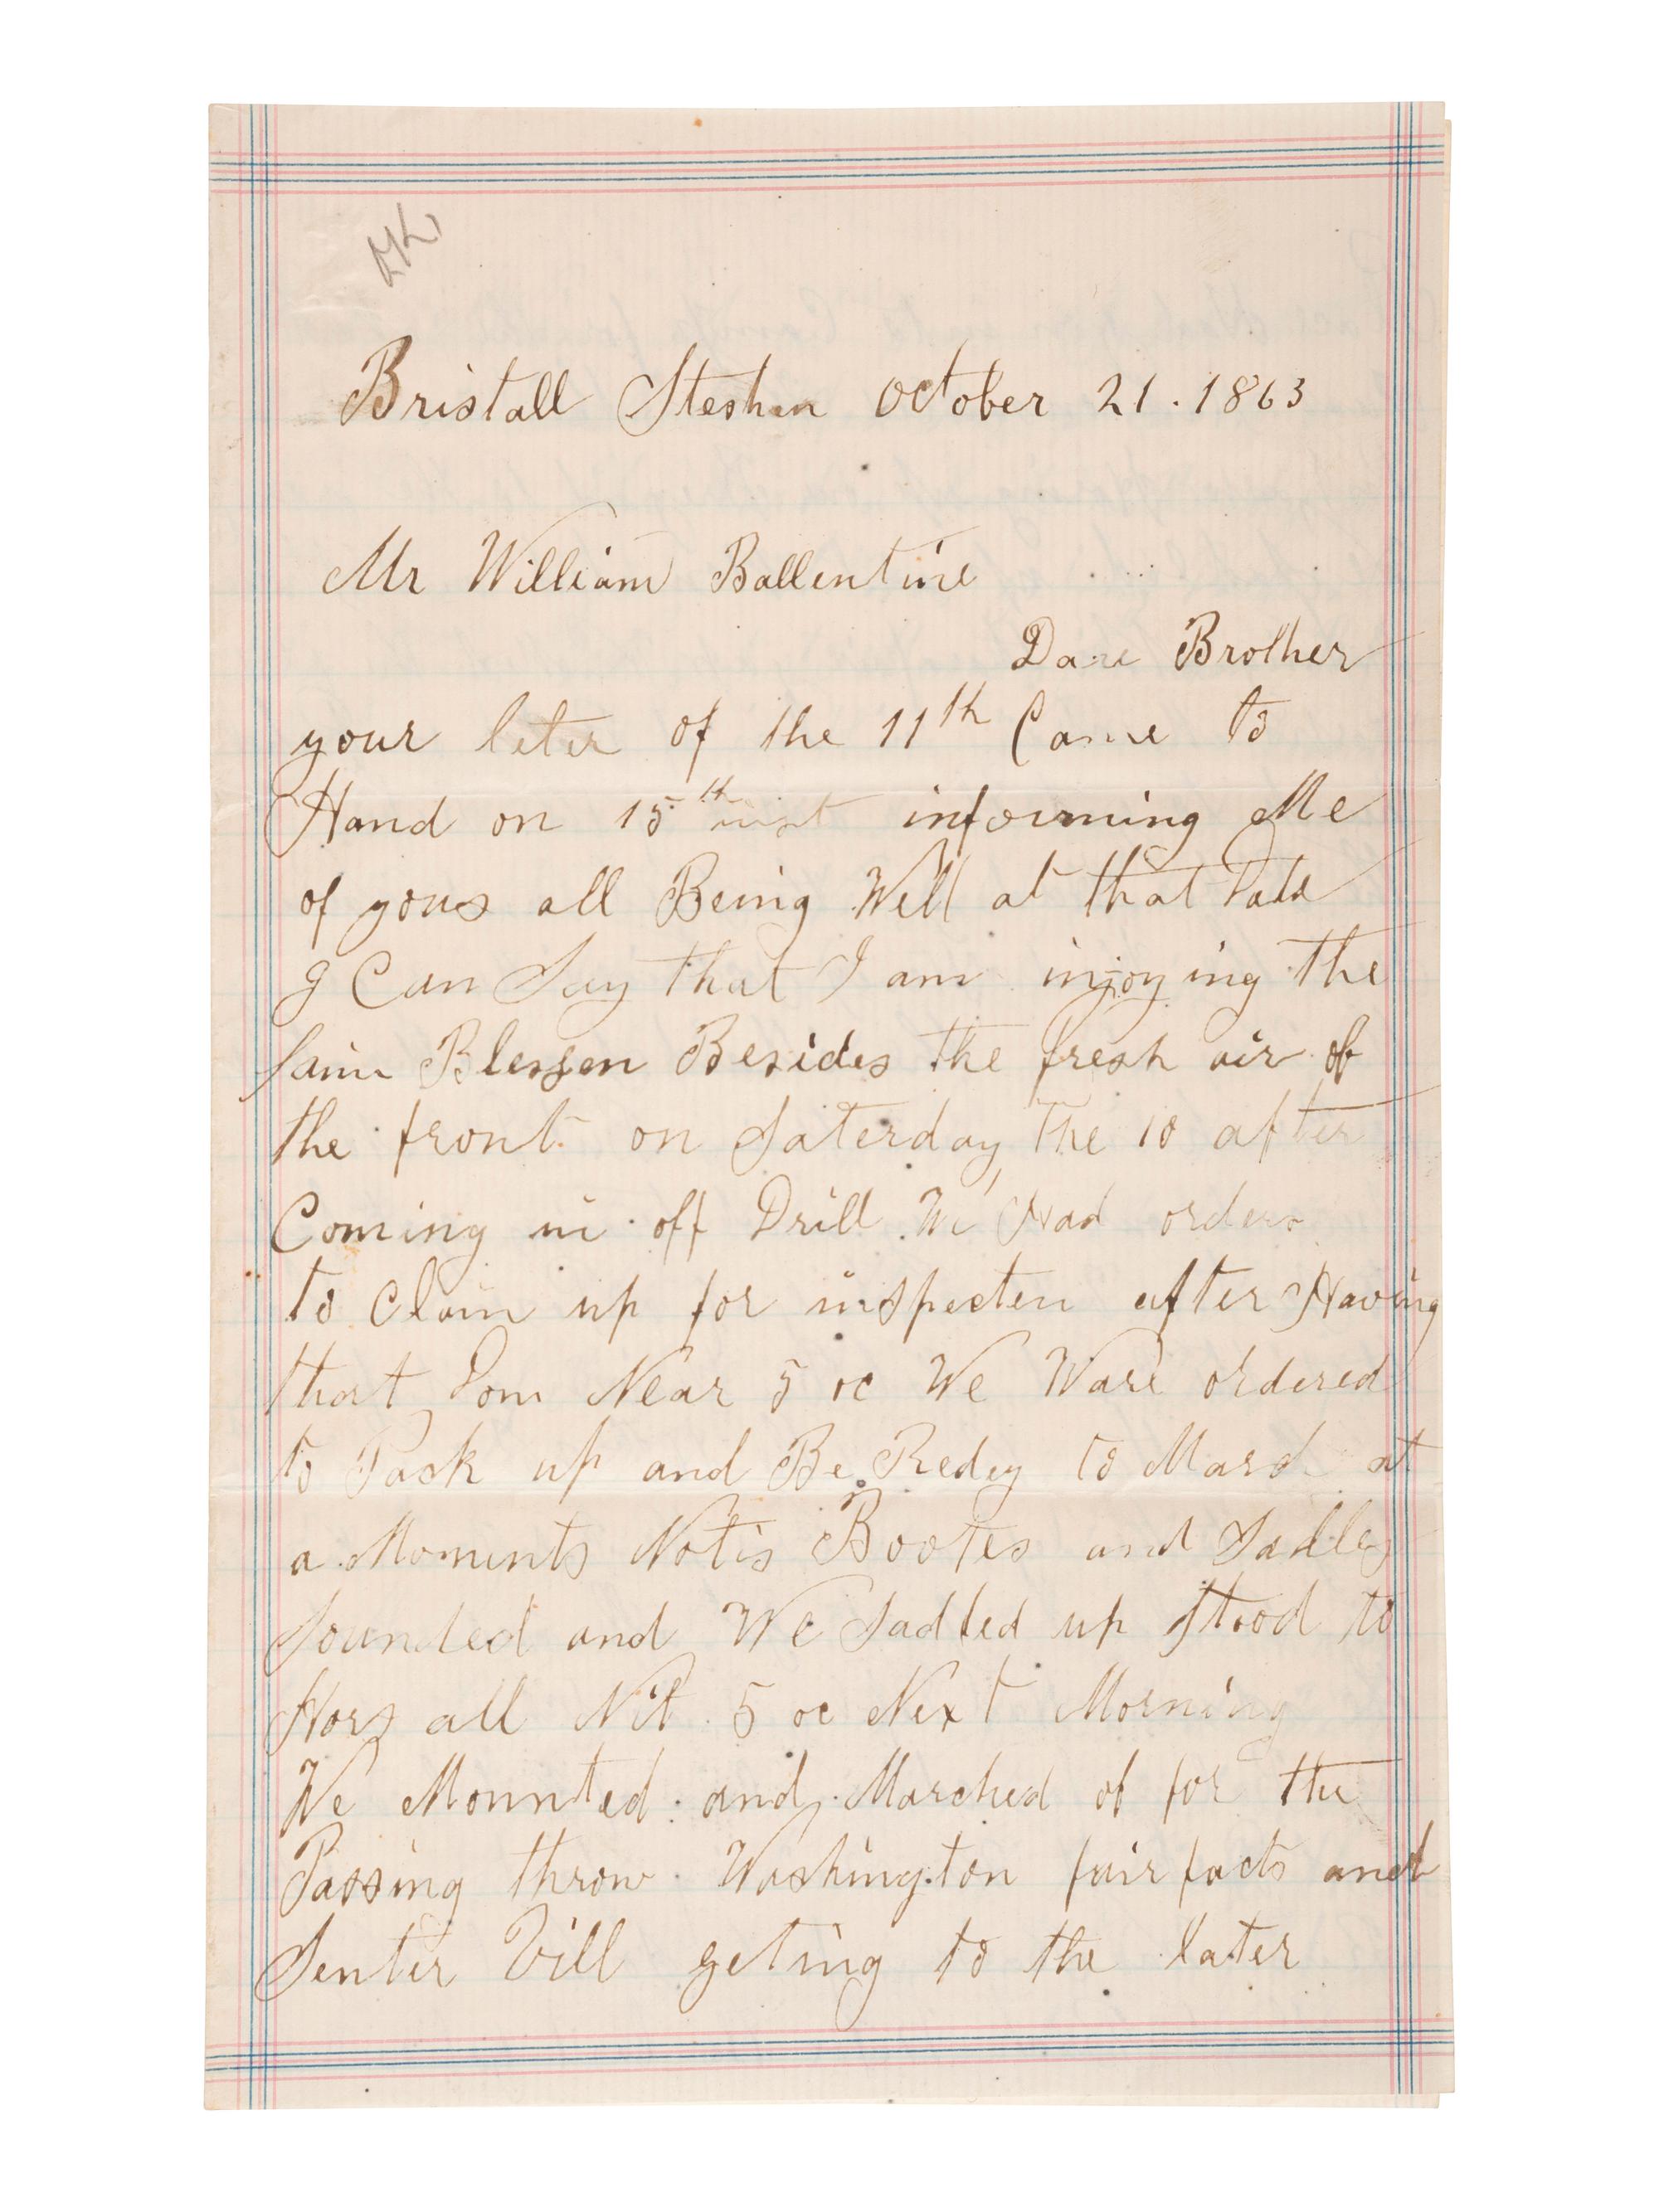 Bristall Steshen October 21. 1863
Mr William Ballentine
Dare Brother
your leter of the 11th Came to
Hand on 15th inst informing Me
of yous all Being Well at that Date
I Can Say that I am injoying the
Saim Blessen Besides the fresh air of
the front on Saterday the 10 after
Coming in off Drill We Had orders
to Clain up for inspecten after Having
that Don Near 5 oc We Ware ordered
to Pack up and Be Redey to March at
a Moments Notis Bootes and Sadles
Sounded and We Sadled up Stood to
Hors all Nit 5 oc Next Morning
We Mounted and Marched of for the
Passing throw Washington fairfacts and
Senter Vill geting to the later